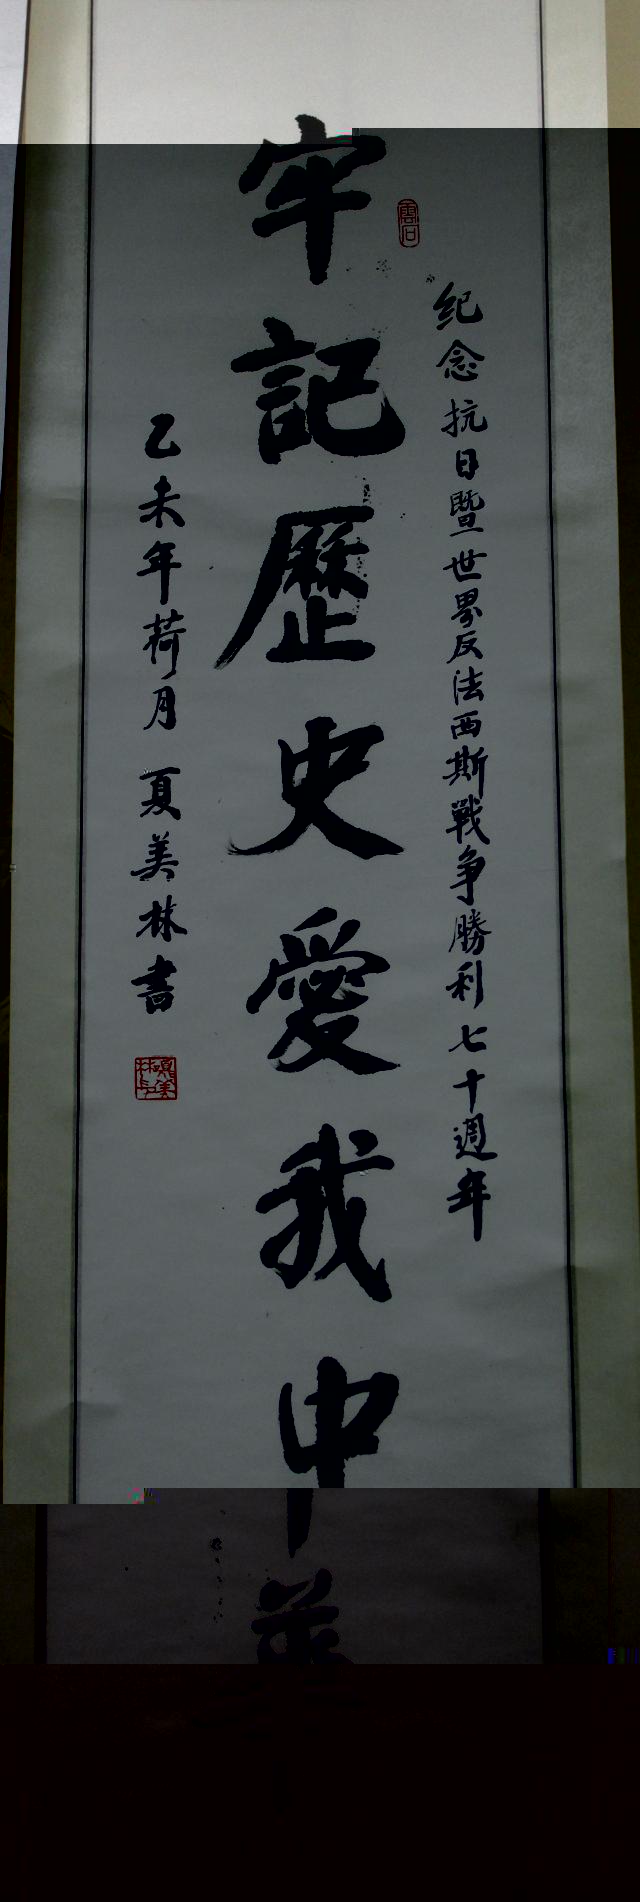 纪念抗日暨世界反法西斯戰争勝利七十週年
牢記歷史愛我中
乙未年荷月 夏美林書
雲石